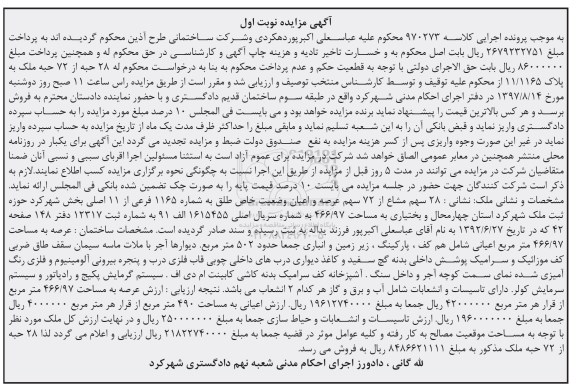 آگهی مزایده نوبت اول
به موجب پرونده اجرایی کلاسه ۹۷۰۲۷۳ محکوم علیه عباسعلی اکبرپوردهکردی وشرکت ساختمانی طرح آذین محکوم گردیده اند به پرداخت
مبلغ ۲۶۷۹۲۳۲۷۵۱ ریال بابت اصل محکوم به و خسارت تاخیر تادیه و هزینه چاپ آگهی و کارشناسی در حق محکوم له و همچنین پرداخت مبلغ
۸۶۰۰۰۰۰۰ ریال بابت حق الاجرای دولتی با توجه به قطعیت حکم و عدم پرداخت محکوم به بنا به درخواست محکوم له ۲۸ حبه از ۷۲ حبه ملک به
پلاک ۱۱/۱۱۶۵ از محکوم علیه توقیف و توسط کارشناس منتخب توصیف و ارزیابی شد و مقرر است از طریق مزایده راس ساعت ۱۱ صبح روز دوشنبه
مورخ ۱۳۹۷/۸/۱۴ در دفتر اجرای احکام مدنی شهرکرد واقع در طبقه سوم ساختمان قدیم دادگستری و با حضور نماینده دادستان محترم به فروش
برسد و هر کس بالاترین قیمت را پیشنهاد نماید برنده مزایده خواهد بود و می بایست فی المجلس ۱۰ درصد مبلغ مورد مزایده را به حساب سپرده
دادگستری واریز نماید و قبض بانکی آن را به این شعبه تسلیم نماید و مابقی مبلغ را حداکثر ظرف مدت یک ماه از تاریخ مزایده به حساب سپرده واریز
نماید در غیر این صورت وجوه واریزی پس از کسر هزینه مزایده به نفع صندوق دولت ضبط و مزایده تجدید می گردد این آگهی برای یکبار در روزنامه
محلی منتشر همچنین در معابر عمومی الصاق خواهد شد شرکت در مزایده برای عموم آزاد است به استثنا مسئولین اجرا اقربای سببی و نسبی آنان ضمنا
متقاضیان شرکت در مزایده می توانند در مدت ۵ روز قبل از مزایده از طریق این اجرا نسبت به چگونگی نحوه برگزاری مزایده کسب اطلاع نمایند.لازم به
ذکر است شرکت کنندگان جهت حضور در جلسه مزایده می بایست ۱۰ درصد قیمت پایه را به صورت چک تضمین شده بانکی فی المجلس ارائه نماید.
مشخصات و نشانی ملک: نشانی : ۲۸ سهم مشاع از ۷۲ سهم عرصه و اعیان وضعیت خاص طلق به شماره ۱۱۶۵ فرعی از ۱۱ اصلی بخش شهرکرد حوزه
ثبت ملک شهرکرد استان چهارمحال و بختیاری به مساحت ۴۶۶/۹۷ به شماره سریال اصلی ۱۶۱۵۴۵۵ الف ۹۱ به شماره ثبت ۱۲۳۱۷ دفتر ۱۴۸ صفحه
۴۲ که در تاریخ ۱۳۹۲/۶/۲۷ به نام آقای عباسعلی اکبرپور فرزند یداله به ثبت رسیده و سند صادر گردیده است. مشخصات ساختمان : عرصه به مساحت
۴۶۶/۹۷ متر مربع اعیانی شامل هم کف ، پارکینگ ، زیر زمین و انباری جمعا حدود ۵۰۲ متر مربع. دیوارها آجر با ملات ماسه سیمان سقف طاق ضربی
کف موزائیک و سرامیک پوشش داخلی بدنه گچ سفید و کاغذ دیواری درب های داخلی چوبی قاب فلزی درب و پنجره بیرونی آلومینیوم و فلزی رنگ
آمیزی شده نمای سمت کوچه آجر و داخل سنگ . آشپزخانه کف سرامیک بدنه کاشی کابینت ام دی اف . سیستم گرمایش پکیج و رادیاتور و سیستم
سرمایش کولر. دارای تاسیسات و انشعابات شامل آب و برق و گاز هر کدام ۲ انشعاب می باشد. نتیجه ارزیابی : ارزش عرصه به مساحت ۴۶۶/۹۷ متر مربع
از قرار هر متر مربع ۴۲۰۰۰۰۰۰ ریال جمعا به مبلغ ۱۹۶۱۲۷۴۰۰۰۰ ریال. ارزش اعیانی به مساحت ۴۹۰ متر مربع از قرار هر متر مربع ۴۰۰۰۰۰۰ ریال
جمعا به مبلغ ۱۹۶۰۰۰۰۰۰۰ ریال. ارزش تاسیسات و انشعابات و حیاط سازی جمعا به مبلغ ۲۵۰۰۰۰۰۰۰ ریال و در نهایت ارزش کل ملک مورد نظر
با توجه به مساحت موقعیت مصالح به کار رفته و کلیه عوامل موثر در قضیه جمعا به مبلغ ۲۱۸۲۲۷۴۰۰۰۰ ریال ارزیابی و اعلام می گردد لذا ۲۸ حبه
از ۷۲ حبه ملک مذکور به مبلغ ۸۴۸۶۶۲۱۱۱۱ ریال به فروش می رسد.
لله گانی ، دادورز اجرای احکام مدنی شعبه نهم دادگستری شهرکرد